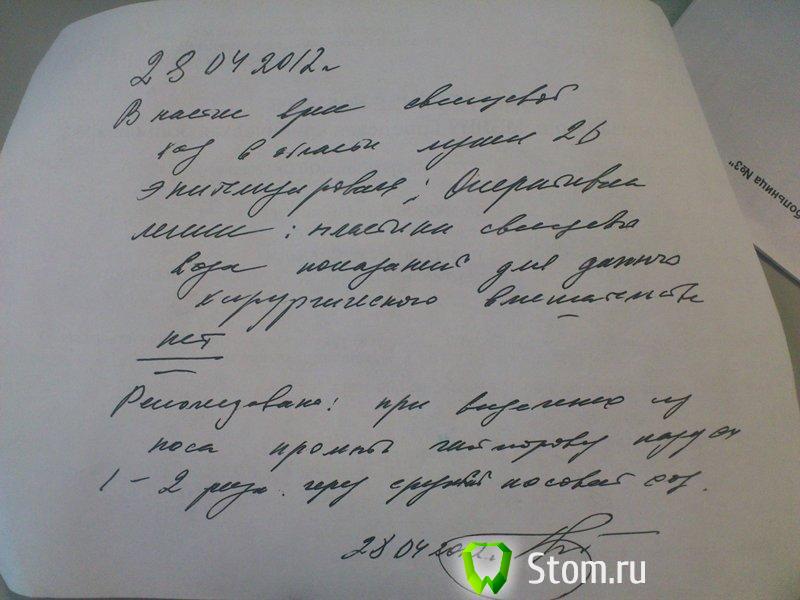 28 04 2012г
В настое врем свищевой
ход в области лунки 26
эпителизировался; Оперативное
лечение: пластики свищева
хода показаний для данного
хирургического вмешательств
нет
Рекомендовано: при выделениях из
носа промыть гайморову пазуху
1-2 раза. через средний носовой ход.
28 04 2012г.
больница №3"
Stom.ru